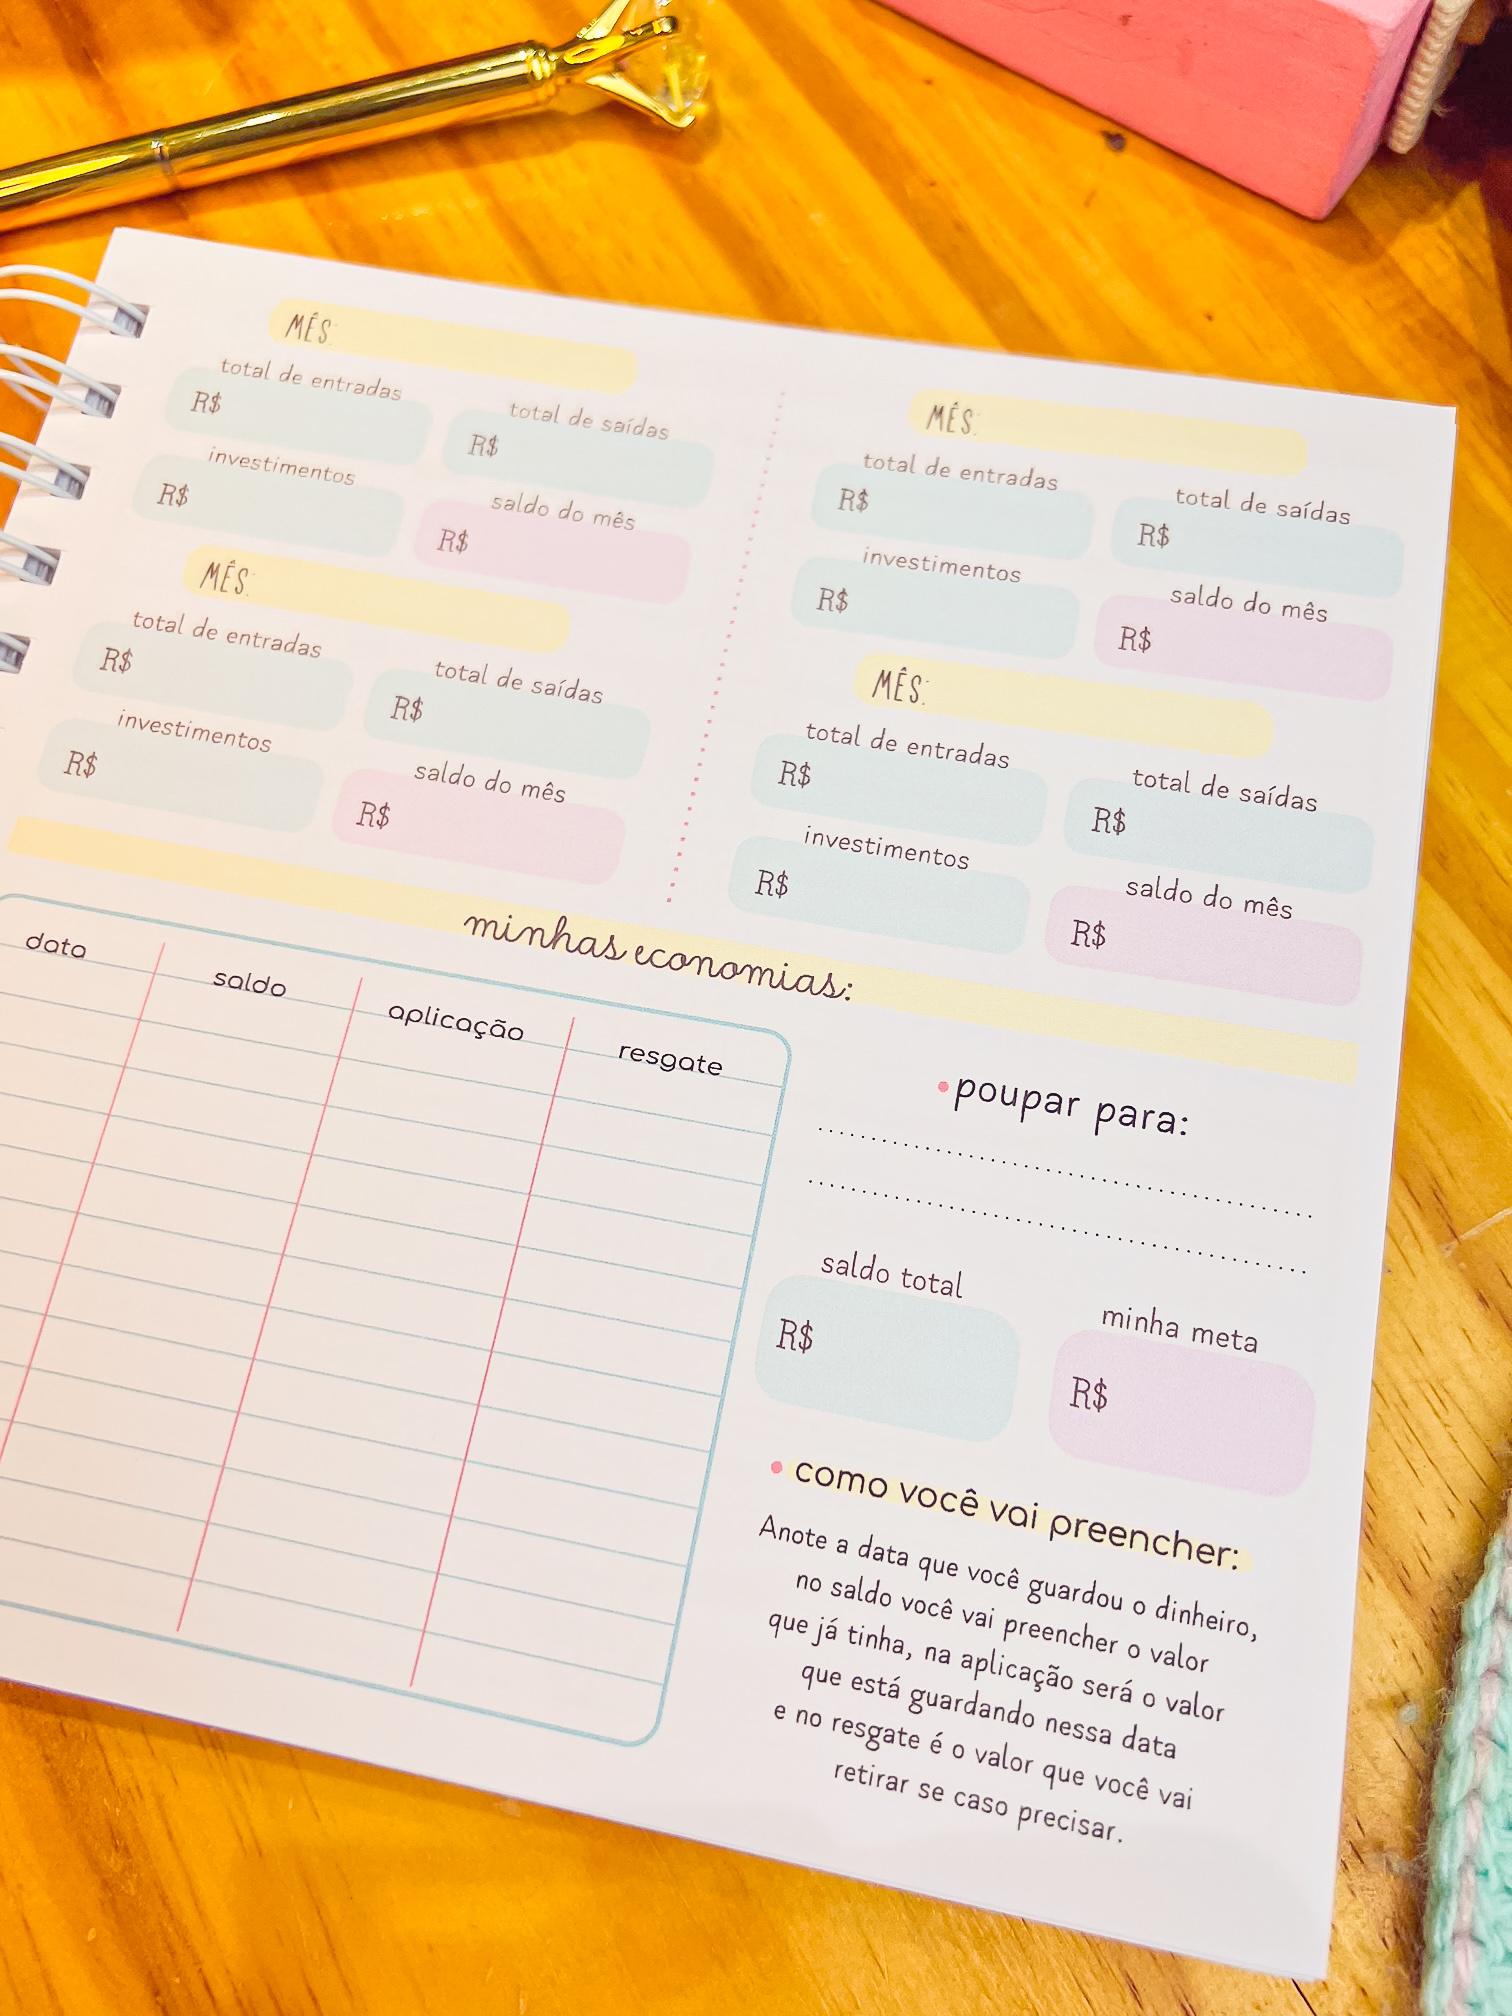 MÊS:
total de entradas
total de saídas
R$
R$
investimentos
saldo do mês
R$
R$
MÊS:
total de entradas
total de saídas
R$
R$
investimentos
saldo do mês
R$
R$
MÊS:
total de entradas
total de saídas
R$
R$
investimentos
saldo do mês
R$
R$
MÊS:
total de entradas
total de saídas
R$
R$
investimentos
saldo do mês
R$
R$
minhas economias:
data saldo aplicação resgate
• poupar para:
saldo total
minha meta
R$
R$
• como você vai preencher:
Anote a data que você guardou o dinheiro,
no saldo você vai preencher o valor
que já tinha, na aplicação será o valor
que está guardando nessa data
e no resgate é o valor que você vai
retirar se caso precisar.